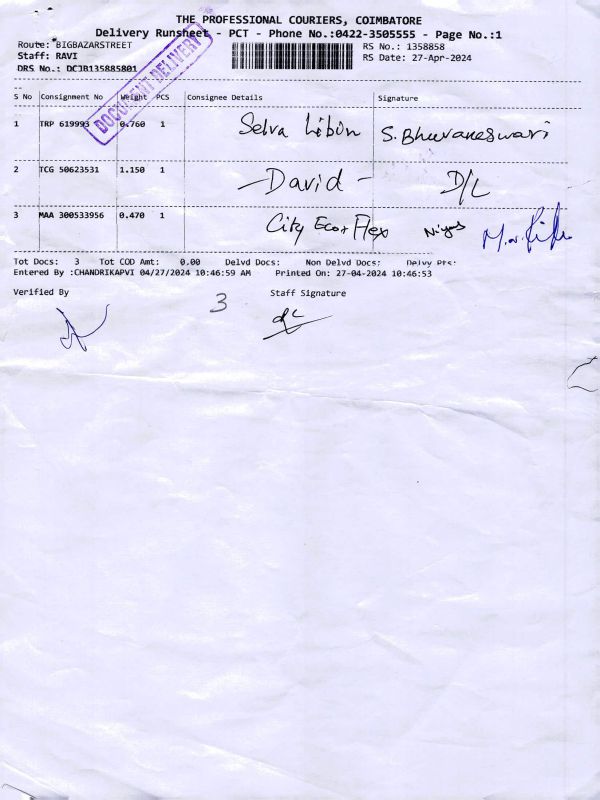 THE PROFESSIONAL COURIERS, COIMBATORE
Delivery Runsheet - PCT - Phone No.:0422-3505555 - Page No.:1
Route: BIGBAZARSTREET
RS No.: 1358858
Staff: RAVI
RS Date: 27-Apr-2024
DRS No.: DCJB135885801
DOCUMENT DELIVERY
S No Consignment No Weight PCS Consignee Details Signature
1 TRP 619993 0.760 1 Selva Libin S. Bhuvaneswari
2 TCG 50623531 1.150 1 - David - D/L
3 MAA 300533956 0.470 1 City Eco Flex
Tot Docs: 3 Tot COD Amt: 0.00 Delvd Docs: Non Delvd Docs: Delvy Pts:
Entered By :CHANDRIKAPVI 04/27/2024 10:46:59 AM Printed On: 27-04-2024 10:46:53
Verified By 3 Staff Signature